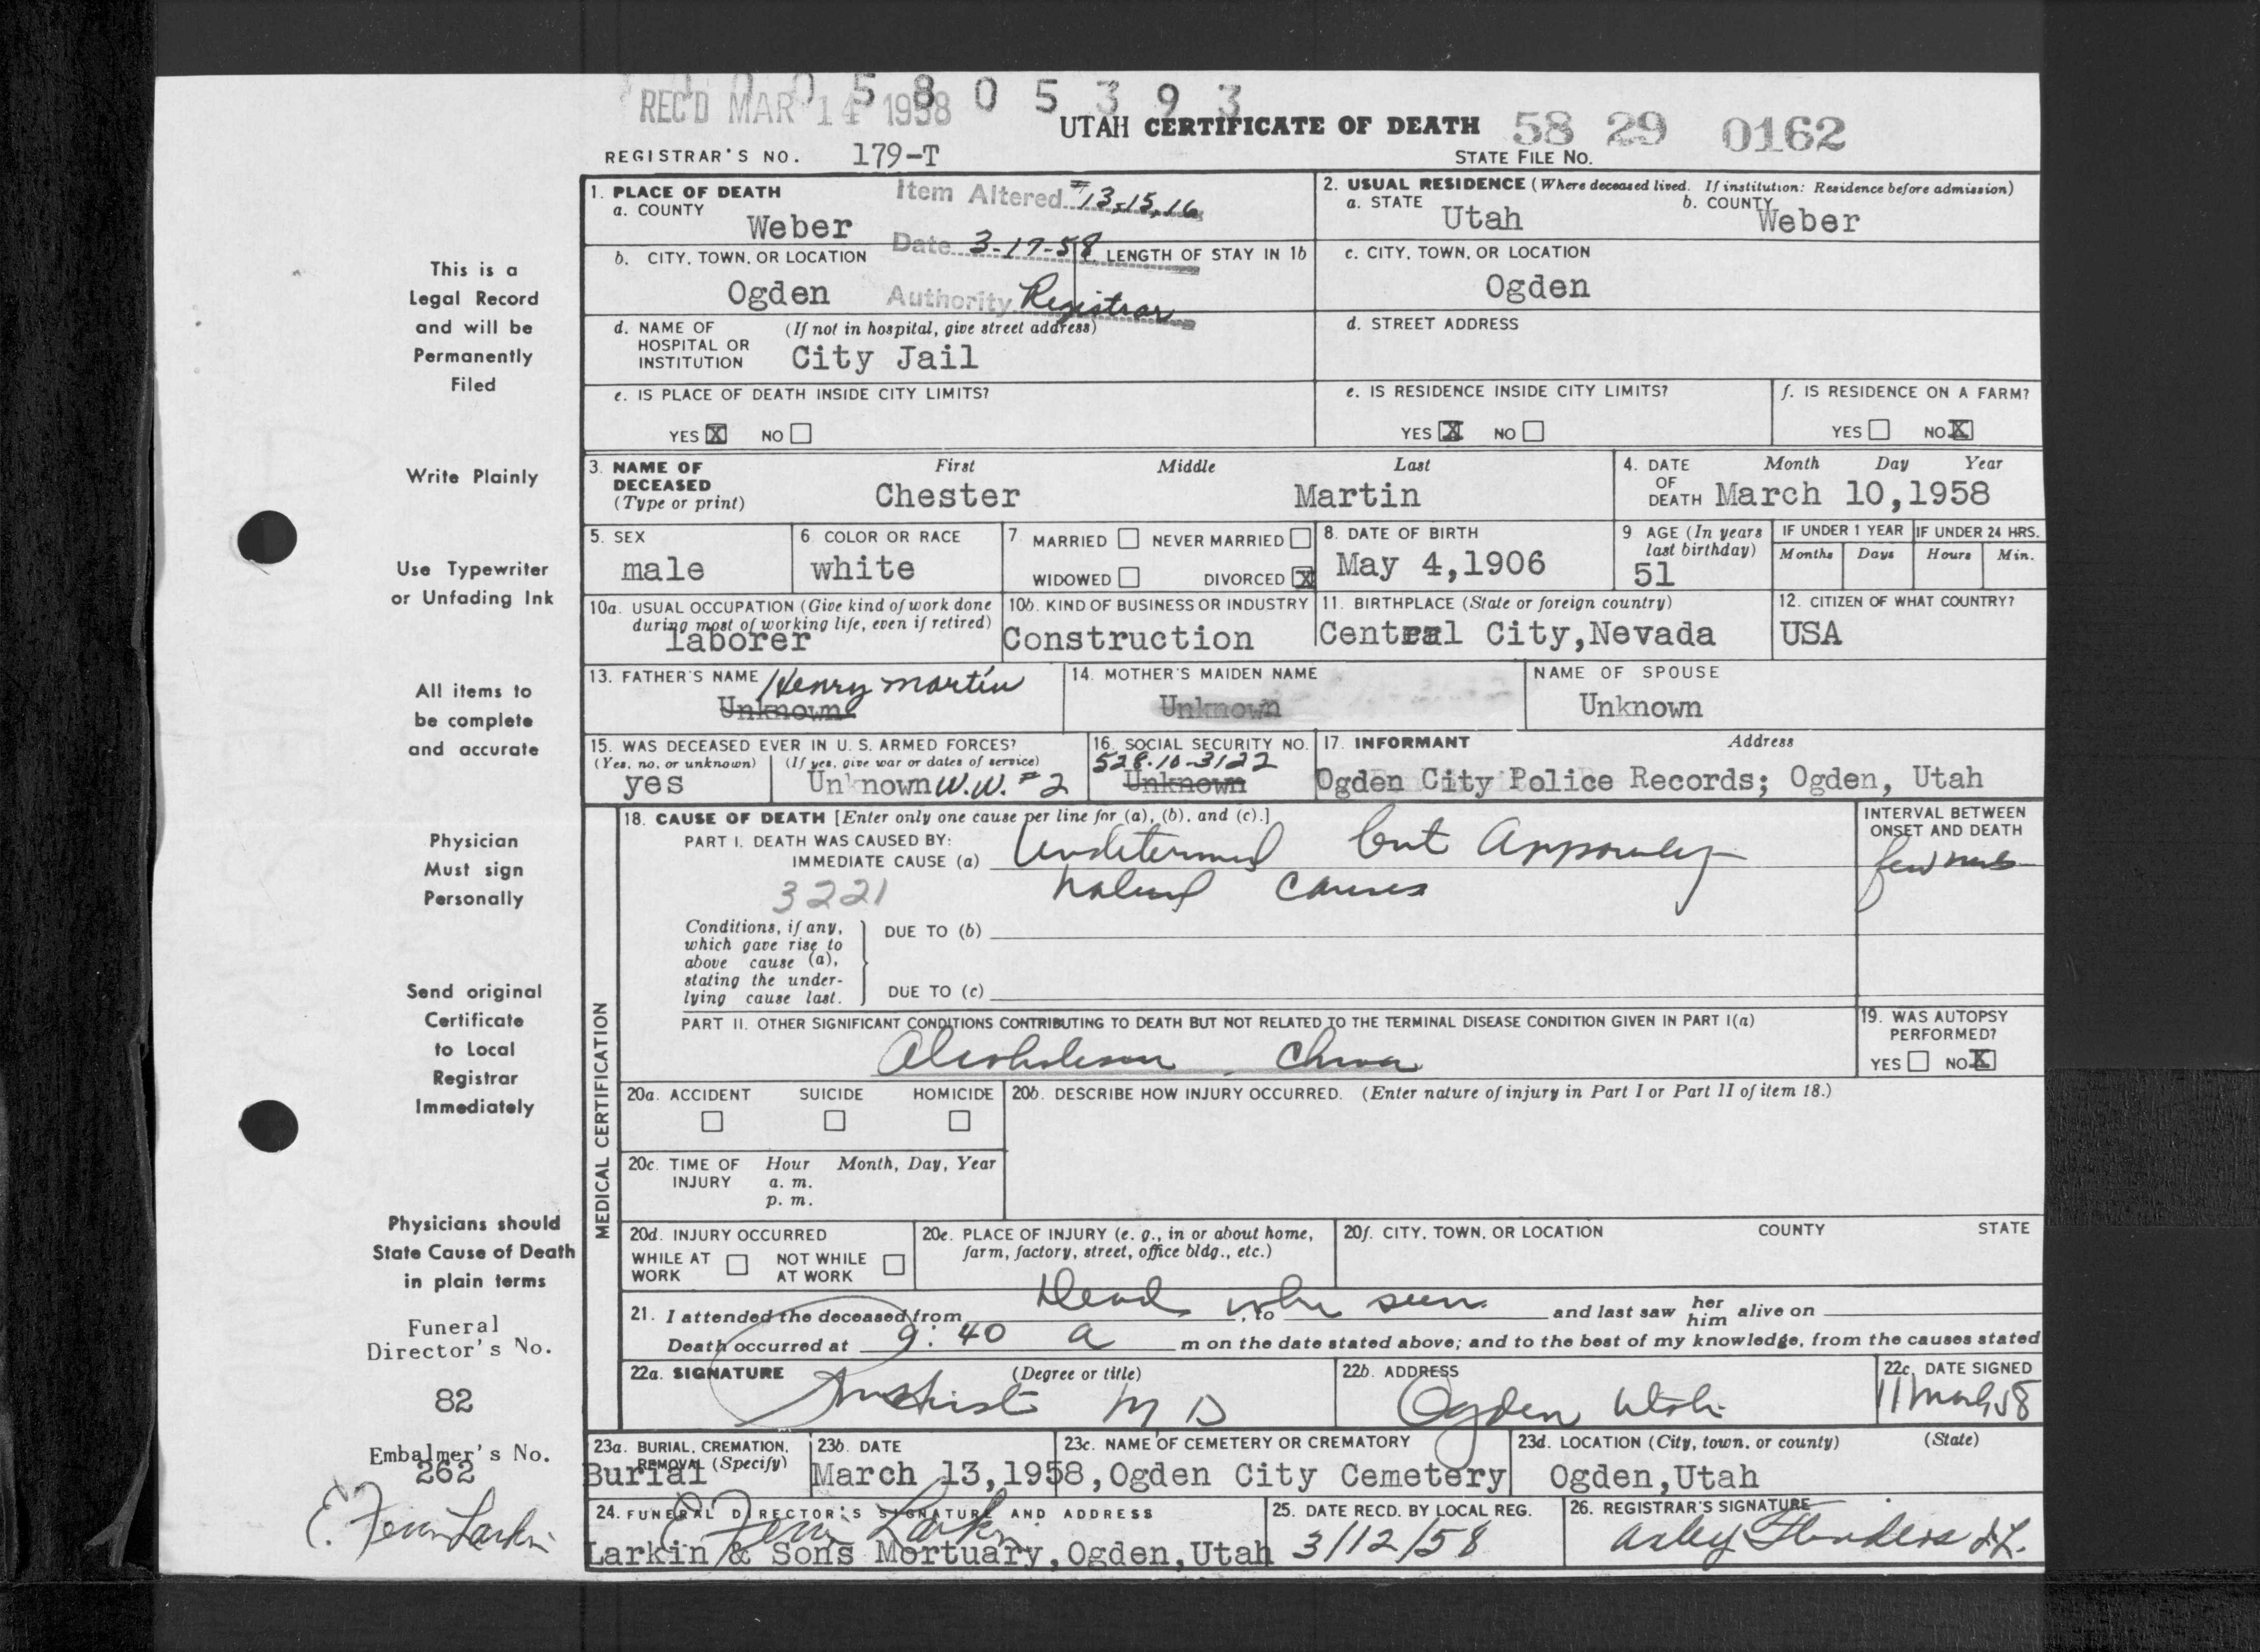 REC'D MAR 14 1958
5 8 0 5 3 9 3
UTAH CERTIFICATE OF DEATH 58 29 0162
REGISTRAR'S NO. 179-T
STATE FILE NO.
1. PLACE OF DEATH
a. COUNTY
Weber
Item Altered #13,15,16
Date 3-17-58
Authority Registrar
2. USUAL RESIDENCE (Where deceased lived. If institution: Residence before admission)
a. STATE Utah b. COUNTY Weber
b. CITY, TOWN, OR LOCATION
Ogden
c. LENGTH OF STAY IN 1b
c. CITY, TOWN, OR LOCATION
Ogden
d. NAME OF (If not in hospital, give street address)
HOSPITAL OR
INSTITUTION City Jail
d. STREET ADDRESS
e. IS PLACE OF DEATH INSIDE CITY LIMITS?
YES X NO
e. IS RESIDENCE INSIDE CITY LIMITS?
YES X NO
f. IS RESIDENCE ON A FARM?
YES NO X
3. NAME OF DECEASED (Type or print)
First Middle Last
Chester Martin
4. DATE OF DEATH Month Day Year
March 10,1958
5. SEX
male
6. COLOR OR RACE
white
7. MARRIED NEVER MARRIED
WIDOWED DIVORCED X
8. DATE OF BIRTH
May 4,1906
9 AGE (In years last birthday)
51
IF UNDER 1 YEAR
Months Days
IF UNDER 24 HRS.
Hours Min.
10a. USUAL OCCUPATION (Give kind of work done
during most of working life, even if retired)
laborer
10b. KIND OF BUSINESS OR INDUSTRY
Construction
11. BIRTHPLACE (State or foreign country)
Central City,Nevada
12. CITIZEN OF WHAT COUNTRY?
USA
13. FATHER'S NAME Henry Martin
Unknown
14. MOTHER'S MAIDEN NAME
Unknown
NAME OF SPOUSE
Unknown
15. WAS DECEASED EVER IN U. S. ARMED FORCES?
(Yes, no, or unknown) (If yes, give war or dates of service)
yes Unknown W.W. #2
16. SOCIAL SECURITY NO.
528-10-3122
Unknown
17. INFORMANT Address
Ogden City Police Records; Ogden, Utah
MEDICAL CERTIFICATION
18. CAUSE OF DEATH [Enter only one cause per line for (a), (b), and (c).]
PART I. DEATH WAS CAUSED BY:
IMMEDIATE CAUSE (a) Undetermined but Apparently
3221 natural causes
INTERVAL BETWEEN
ONSET AND DEATH
few
Conditions, if any,
which gave rise to
above cause (a),
stating the under-
lying cause last.
DUE TO (b)
DUE TO (c)
PART II. OTHER SIGNIFICANT CONDITIONS CONTRIBUTING TO DEATH BUT NOT RELATED TO THE TERMINAL DISEASE CONDITION GIVEN IN PART I(a)
Alcoholism
19. WAS AUTOPSY
PERFORMED?
YES NO X
20a. ACCIDENT SUICIDE HOMICIDE
20b. DESCRIBE HOW INJURY OCCURRED. (Enter nature of injury in Part I or Part II of item 18.)
20c. TIME OF INJURY Hour Month, Day, Year
a. m.
p. m.
20d. INJURY OCCURRED
WHILE AT WORK NOT WHILE AT WORK
20e. PLACE OF INJURY (e. g., in or about home,
farm, factory, street, office bldg., etc.)
20f. CITY, TOWN, OR LOCATION COUNTY STATE
21. I attended the deceased from Dead when seen, to and last saw her him alive on
Death occurred at 9:40 a m on the date stated above; and to the best of my knowledge, from the causes stated
22a. SIGNATURE (Degree or title)
M D
22b. ADDRESS
Ogden Utah
22c. DATE SIGNED
11 Mar 58
23a. BURIAL, CREMATION,
REMOVAL (Specify)
Burial
23b. DATE
March 13,1958,
23c. NAME OF CEMETERY OR CREMATORY
Ogden City Cemetery
23d. LOCATION (City, town, or county) (State)
Ogden,Utah
24. FUNERAL DIRECTOR'S SIGNATURE AND ADDRESS
E. Fern Larkin
Larkin & Sons Mortuary,Ogden,Utah
25. DATE RECD. BY LOCAL REG.
3/12/58
26. REGISTRAR'S SIGNATURE
This is a
Legal Record
and will be
Permanently
Filed
Write Plainly
Use Typewriter
or Unfading Ink
All items to
be complete
and accurate
Physician
Must sign
Personally
Send original
Certificate
to Local
Registrar
Immediately
Physicians should
State Cause of Death
in plain terms
Funeral
Director's No.
82
Embalmer's No.
262
E. Fern Larkin